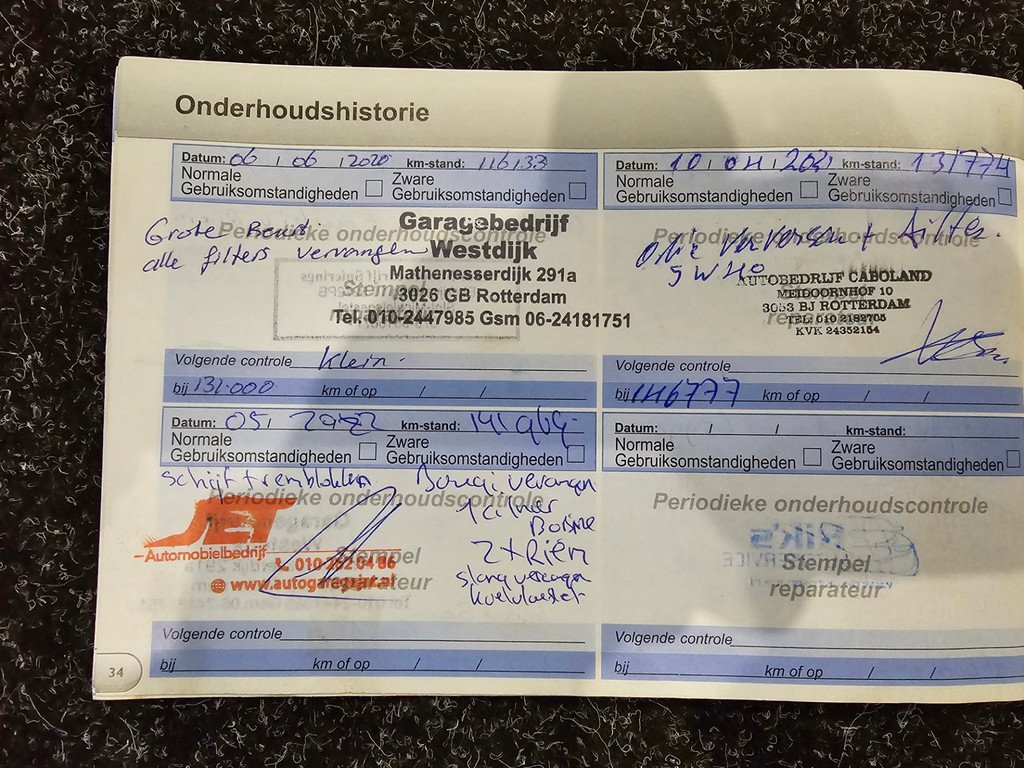 Onderhoudshistorie
Datum: 06 / 06 / 2020 km-stand: 116133
Normale Gebruiksomstandigheden
Zware Gebruiksomstandigheden
Grote Beurt
alle filters vervangen
Periodieke onderhoudscontrole
Garagebedrijf
Westdijk
Mathenesserdijk 291a
3026 GB Rotterdam
Tel. 010-2447985 Gsm 06-24181751
Stempel
Volgende controle Klein.
bij 131.000 km of op / /
Datum: 10 / 04 / 2021 km-stand: 131774
Normale Gebruiksomstandigheden
Zware Gebruiksomstandigheden
Periodieke onderhoudscontrole
5W40
AUTOBEDRIJF CABOLAND
MEIDOORNHOF 10
3053 BJ ROTTERDAM
TEL: 010 2182705
KVK 24352154
reparateur
Volgende controle
bij 146777 km of op / /
Datum: 05 / km-stand:
Normale Gebruiksomstandigheden
Zware Gebruiksomstandigheden
Schijf + remblokken
Periodieke onderhoudscontrole
JET
Automobielbedrijf
010 262 04 86
www.autogarepar.nl
Stempel
reparateur
Bougi
2x Riem
slang
Volgende controle
bij km of op / /
Datum: / / km-stand:
Normale Gebruiksomstandigheden
Zware Gebruiksomstandigheden
Periodieke onderhoudscontrole
Rik's
Stempel
reparateur
Volgende controle
bij km of op / /
34